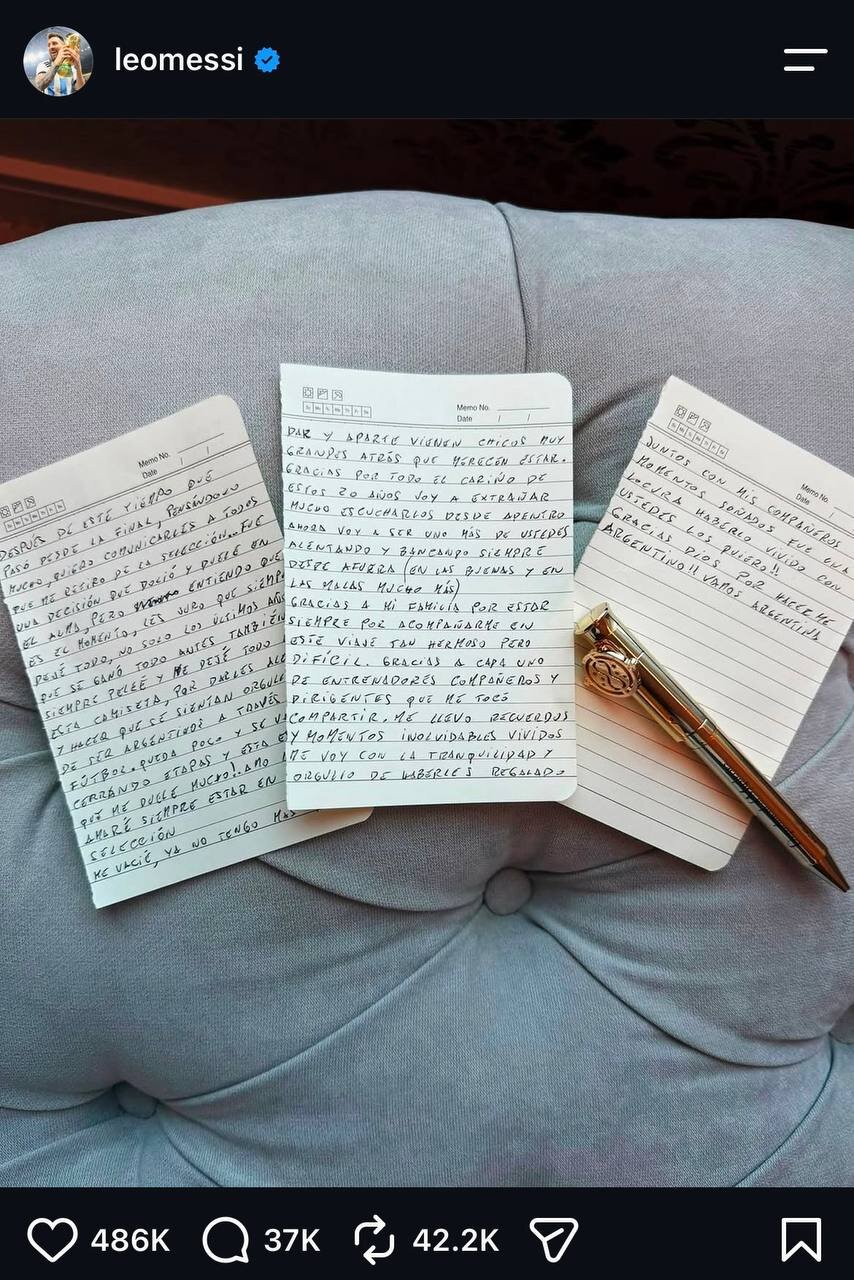 leomessi
Memo No.
Date / /
DESPUÉS DE ESTE TIEMPO QUE
PASÓ DESDE LA FINAL, PENSÁNDOLO
MUCHO, QUIERO COMUNICARLES A TODOS
QUE ME RETIRO DE LA SELECCIÓN.. FUE
UNA DECISIÓN QUE DOLIÓ Y DUELE EN
EL ALMA, PERO ENTIENDO QUE
ES EL MOMENTO, LES JURO QUE SIEMP
DEJÉ TODO, NO SOLO LOS ÚLTIMOS AÑOS
QUE SE GANÓ TODO ANTES TAMBIÉN
SIEMPRE PELEÉ Y ME DEJÉ TODO
ESTA CAMISETA, POR DARLES ALE
Y HACER QUE SE SIENTAN ORGULL
DE SER ARGENTINOS A TRAVÉS
FÚTBOL. QUEDA POCO Y SE VA
CERRANDO ETAPAS Y ESTA E
QUE ME DUELE MUCHO!. AMO
AMARÉ SIEMPRE ESTAR EN
SELECCIÓN
ME VACIÉ, YA NO TENGO MAS
Memo No.
Date / /
DAR Y APARTE VIENEN CHICOS MUY
GRANDES ATRÁS QUE MERECEN ESTAR.
GRACIAS POR TODO EL CARIÑO DE
ESTOS 20 AÑOS VOY A EXTRAÑAR
MUCHO ESCUCHARLOS DESDE ADENTRO
AHORA VOY A SER UNO MÁS DE USTEDES
ALENTANDO Y BANCANDO SIEMPRE
DESDE AFUERA (EN LAS BUENAS Y EN
LAS MALAS MUCHO MÁS)
GRACIAS A MI FAMILIA POR ESTAR
SIEMPRE POR ACOMPAÑARME EN
ESTE VIAJE TAN HERMOSO PERO
DIFÍCIL. GRACIAS A CADA UNO
DE ENTRENADORES COMPAÑEROS Y
DIRIGENTES QUE ME TOCÓ
COMPARTIR. ME LLEVO RECUERDOS
Y MOMENTOS INOLVIDABLES VIVIDOS
ME VOY CON LA TRANQUILIDAD Y
ORGULLO DE HABERLES REGALADO
Memo No.
Date /
JUNTOS CON MIS COMPAÑEROS
MOMENTOS SOÑADOS FUE UNA
LOCURA HABERLO VIVIDO CON
USTEDES LOS QUIERO!!
GRACIAS DIOS POR HACERME
ARGENTINO!! VAMOS ARGENTINA
486K
37K
42.2K